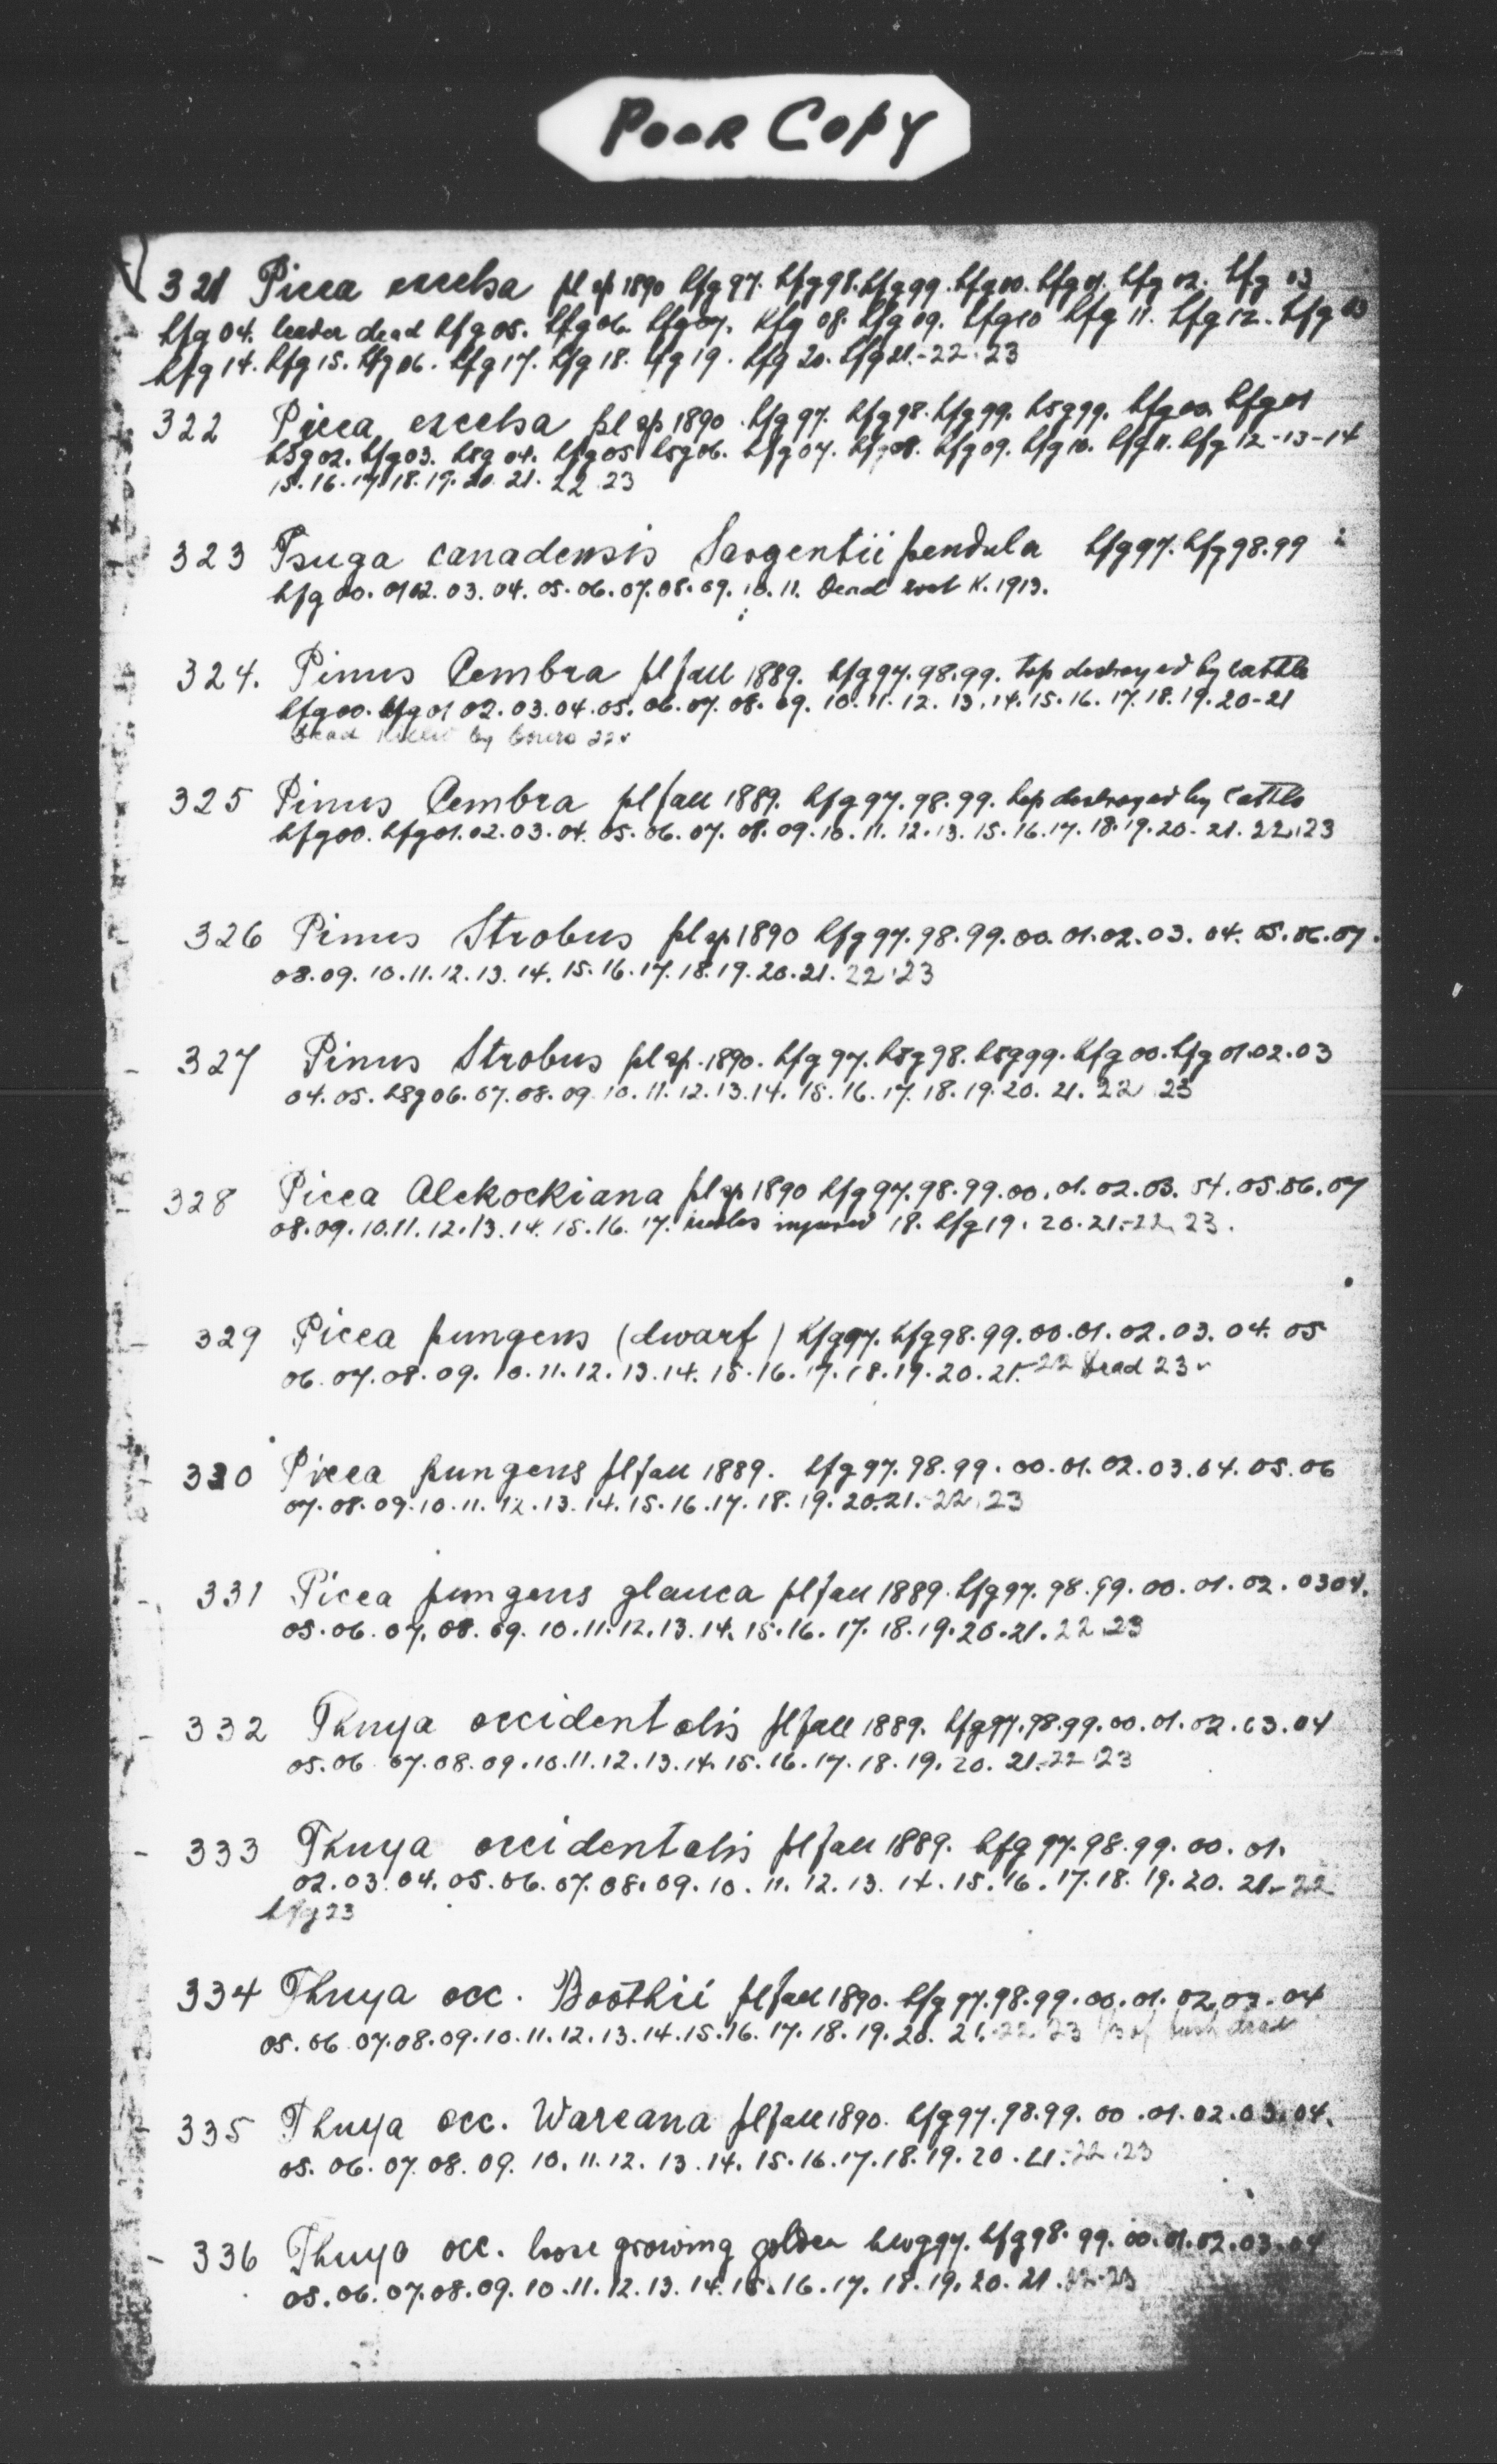 Poor Copy
321 Picea excelsa pl sp 1890 hfg 97. hfg 98. hfg 99. hfg 00. hfg 01. hfg 02. hfg 03
hfg 04. leader dead hfg 05. hfg 06. hfg 07. hfg 08. hfg 09. hfg 10 hfg 11. hfg 12. hfg 13
hfg 14. hfg 15. hfg 06. hfg 17. hfg 18. hfg 19. hfg 20. hfg 21.-22.23
322 Picea excelsa pl sp 1890. hfg 97. hfg 98. hfg 99. hsg 99. hfg 00. hfg 01
hsg 02. hfg 03. hsg 04. hfg 05 hsg 06. hfg 07. hfg 08. hfg 09. hfg 10. hfg 11. hfg 12-13-14
15.16.17.18.19.20.21.22.23
323 Tsuga canadensis Sargentii pendula hfg 97. hfg 98.99
hfg 00. 01 02. 03. 04. 05. 06. 07. 08. 09. 10. 11. Dead K. 1913.
324. Pinus Cembra pl fall 1889. hfg 97. 98. 99. top destroyed by cattle
hfg 00. hfg 01 02. 03. 04. 05. 06. 07. 08. 09. 10. 11. 12. 13. 14. 15. 16. 17. 18. 19. 20-21
Dead killed by borers 22
325 Pinus Cembra pl fall 1889. hfg 97. 98. 99. top destroyed by cattle
hfg 00. hfg 01. 02. 03. 04. 05. 06. 07. 08. 09. 10. 11. 12. 13. 15. 16. 17. 18. 19. 20- 21. 22.23
326 Pinus Strobus pl sp 1890 hfg 97. 98. 99. 00. 01. 02. 03. 04. 05. 06. 07.
08. 09. 10. 11. 12. 13. 14. 15. 16. 17. 18. 19. 20. 21. 22.23
327 Pinus Strobus pl sp. 1890. hfg 97. hsg 98. hsg 99. hfg 00. hfg 01. 02. 03
04. 05. hsg 06. 07. 08. 09. 10. 11. 12. 13. 14. 15. 16. 17. 18. 19. 20. 21. 22 23
328 Picea Alckockiana pl sp 1890 hfg 97. 98. 99. 00. 01. 02. 03. 04. 05. 06. 07
08. 09. 10. 11. 12. 13. 14. 15. 16. 17. injured 18. hfg 19. 20. 21.-22. 23.
329 Picea pungens (dwarf) hfg 97. hfg 98. 99. 00. 01. 02. 03. 04. 05
06. 07. 08. 09. 10. 11. 12. 13. 14. 15. 16. 17. 18. 19. 20. 21.-22 Dead 23
330 Picea pungens pl fall 1889. hfg 97. 98. 99. 00. 01. 02. 03. 04. 05. 06
07. 08. 09. 10. 11. 12. 13. 14. 15. 16. 17. 18. 19. 20. 21.-22.23
331 Picea pungens glauca pl fall 1889. hfg 97. 98. 99. 00. 01. 02. 03 04.
05. 06. 07. 08. 09. 10. 11. 12. 13. 14. 15. 16. 17. 18. 19. 20. 21. 22.23
332 Thuya occidentalis pl fall 1889. hfg 97. 98. 99. 00. 01. 02. 03. 04
05. 06 07. 08. 09. 10. 11. 12. 13. 14. 15. 16. 17. 18. 19. 20. 21.-22 23
333 Thuya occidentalis pl fall 1889. hfg 97. 98. 99. 00. 01.
02. 03. 04. 05. 06. 07. 08. 09. 10. 11. 12. 13. 14. 15. 16. 17. 18. 19. 20. 21.-22
hfg 23
334 Thuya occ. Boothii pl fall 1890. hfg 97. 98. 99. 00. 01. 02. 03. 04
05. 06 07. 08. 09. 10. 11. 12. 13. 14. 15. 16. 17. 18. 19. 20. 21.-22. 23 1/3 of bush dead
335 Thuya occ. Wareana pl fall 1890. hfg 97. 98. 99. 00. 01. 02. 03. 04.
05. 06. 07. 08. 09. 10. 11. 12. 13. 14. 15. 16. 17. 18. 19. 20. 21.-22.23
336 Thuya occ. loose growing golden hwg 97. hfg 98. 99. 00. 01. 02. 03. 04
05. 06. 07. 08. 09. 10. 11. 12. 13. 14. 15. 16. 17. 18. 19. 20. 21. 22-23